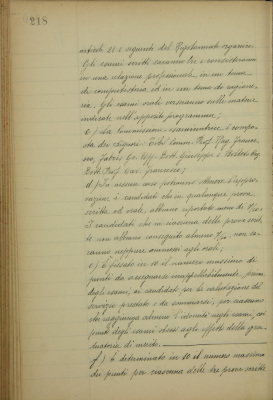 218
articoli 21 e seguenti del Regolamento organico.
Gli esami scritti saranno tre e consisteranno
in una relazione professionale in un tema
di computisteria ed in un tema di ragione-
ria. Gli esami orali verseranno sulle materie
indicate nell'apposito programma;
c) La Commissione esaminatrice è compo-
sta dei signori: Prof. Rag. France-
sco, Cav. Uff. Dott. Giuseppe e
Dott. Prof. Cav. Francesco;
d) In nessun caso potranno ottenere l'appro-
vazione i candidati che in qualunque prova
scritta od orale, abbiano riportato meno di 6/10.
I candidati che in ciascuna delle prove scrit-
te non abbiano conseguito almeno 6/10, non sa-
ranno neppure ammessi agli orali;
e) è fissato in 10 il numero massimo di
punti da assegnarsi inappellabilmente, prima
degli esami, ai candidati per la valutazione del
servizio prestato e da sommarsi, per ciascuno
che raggiunga almeno l'idoneità negli esami, coi
punti degli esami stessi agli effetti della gra-
duatoria di merito.
f) è determinato in 10 il numero massimo
dei punti per ciascuna delle tre prove scritte